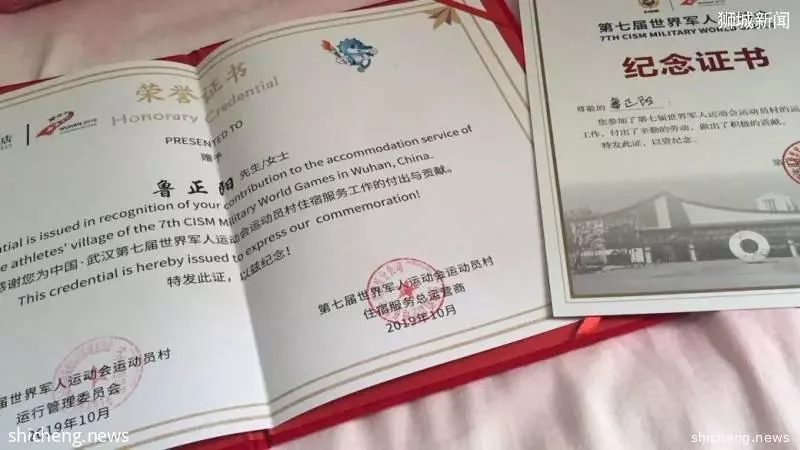 荣誉证书
Honorary Credential
WUHAN 2019
店
PRESENTED TO
赠予
鲁正阳 先生/女士
ntial is issued in recognition of your contribution to the accommodation service of
e athletes' village of the 7th CISM Military World Games in Wuhan, China.
感谢您为中国·武汉第七届世界军人运动会运动员村住宿服务工作的付出与贡献。
This credential is hereby issued to express our commemoration!
特发此证，以兹纪念！
第七届世界军人运动会运动员村
住宿服务总运营商
2019年10月
届世界军人运动会运动员村
运行管理委员会
2019年10月
第七届世界军人
7TH CISM MILITARY WORLD
纪念证书
尊敬的 鲁正阳：
您参加了第七届世界军人运动会运动员村的运
工作，付出了辛勤的劳动，做出了积极的贡献。
特发此证，以资纪念。
第
狮城新闻
shicheng.news
shicheng.news